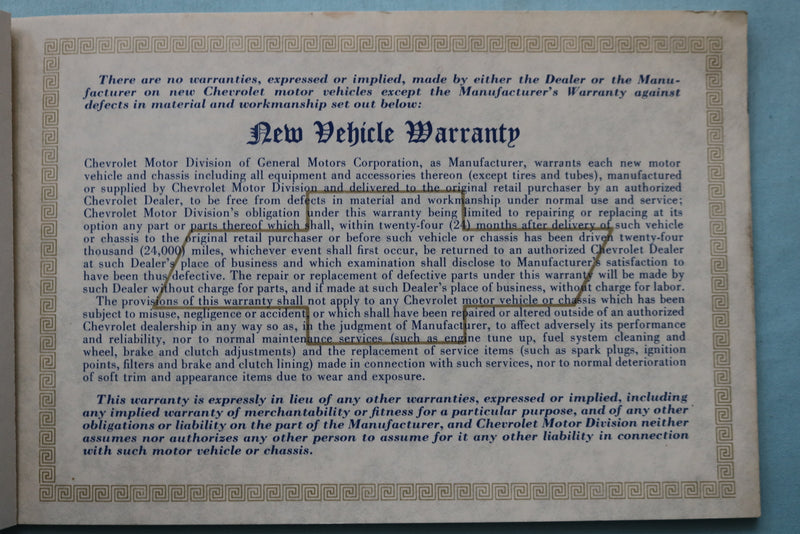 There are no warranties, expressed or implied, made by either the Dealer or the Manu-
facturer on new Chevrolet motor vehicles except the Manufacturer's Warranty against
defects in material and workmanship set out below:
New Vehicle Warranty
Chevrolet Motor Division of General Motors Corporation, as Manufacturer, warrants each new motor
vehicle and chassis including all equipment and accessories thereon (except tires and tubes), manufactured
or supplied by Chevrolet Motor Division and delivered to the original retail purchaser by an authorized
Chevrolet Dealer, to be free from defects in material and workmanship under normal use and service;
Chevrolet Motor Division's obligation under this warranty being limited to repairing or replacing at its
option any part or parts thereof which shall, within twenty-four (24) months after delivery of such vehicle
or chassis to the original retail purchaser or before such vehicle or chassis has been driven twenty-four
thousand (24,000) miles, whichever event shall first occur, be returned to an authorized Chevrolet Dealer
at such Dealer's place of business and which examination shall disclose to Manufacturer's satisfaction to
have been thus defective. The repair or replacement of defective parts under this warranty will be made by
such Dealer without charge for parts, and if made at such Dealer's place of business, without charge for labor.
The provisions of this warranty shall not apply to any Chevrolet motor vehicle or chassis which has been
subject to misuse, negligence or accident or which shall have been repaired or altered outside of an authorized
Chevrolet dealership in any way so as, in the judgment of Manufacturer, to affect adversely its performance
and reliability, nor to normal maintenance services (such as engine tune up, fuel system cleaning and
wheel, brake and clutch adjustments) and the replacement of service items (such as spark plugs, ignition
points, filters and brake and clutch lining) made in connection with such services, nor to normal deterioration
of soft trim and appearance items due to wear and exposure.
This warranty is expressly in lieu of any other warranties, expressed or implied, including
any implied warranty of merchantability or fitness for a particular purpose, and of any other
obligations or liability on the part of the Manufacturer, and Chevrolet Motor Division neither
assumes nor authorizes any other person to assume for it any other liability in connection
with such motor vehicle or chassis.